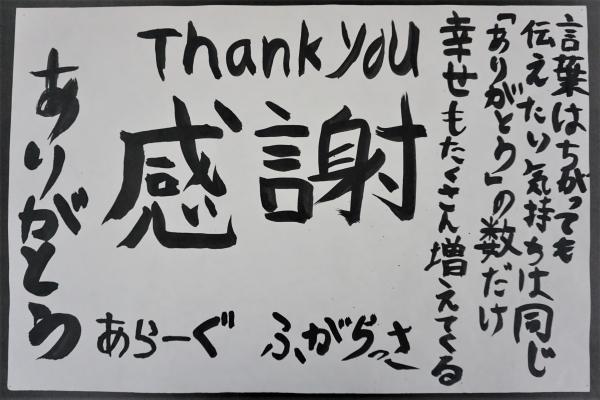 言葉はちがっても
伝えたい気持ちは同じ
「ありがとう」の数だけ
幸せもたくさん増えてくる
Thank you
感謝
ありがとう
あらーぐ ふがらっさ